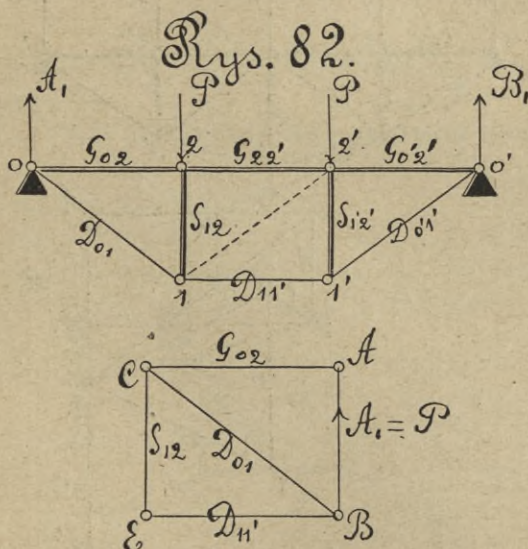 Rys. 82.
A₁ P P B₁
0 G02 2 G22' 2' G0'2' 0'
D01 S12 S1'2' D0'1'
1 D11' 1'
C G02 A
S12 D01 A₁ = P
E D11' B